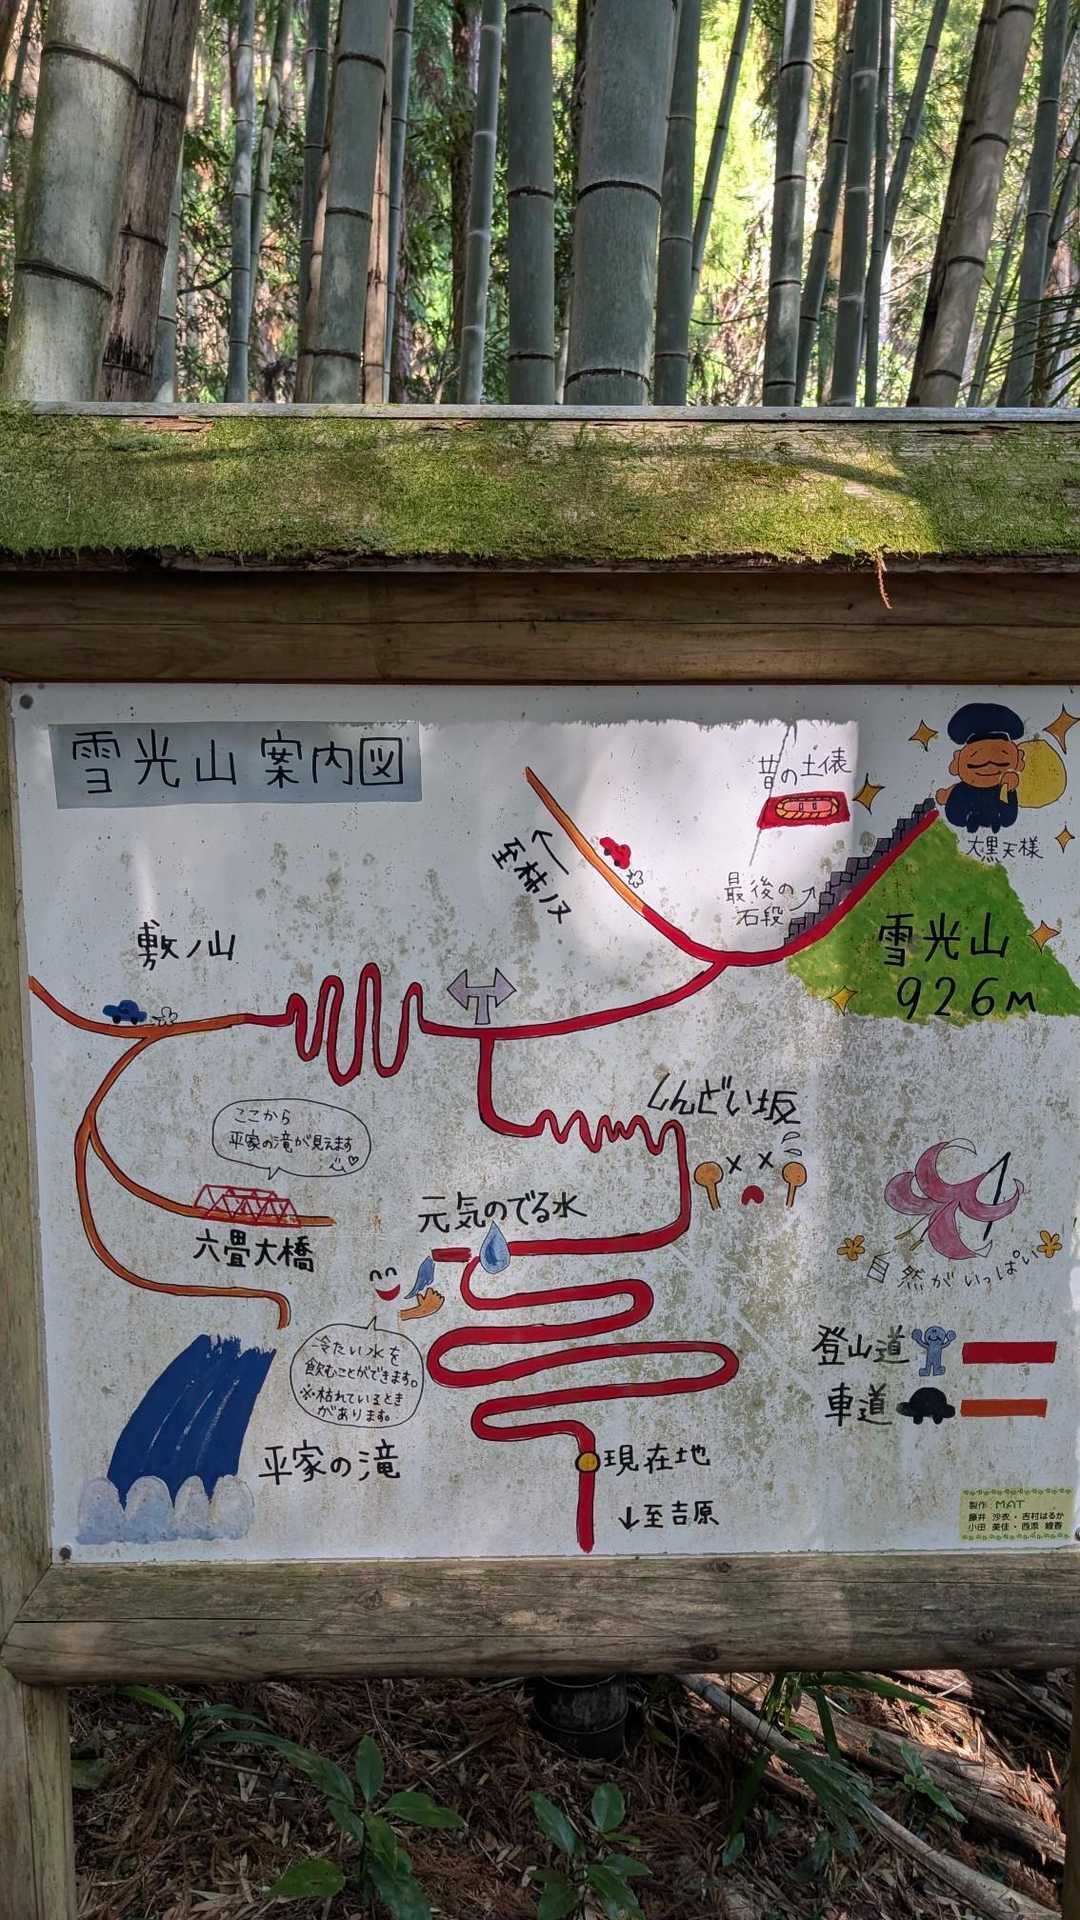 雪光山 案内図
昔の土俵
大黒天様
最後の
石段
雪光山
926m
至柿ノ又
敷ノ山
しんどい坂
ここから
平家の滝が見えます
六畳大橋
元気のでる水
冷たい水を
飲むことができます。
※枯れているとき
があります。
自然がいっぱい
登山道
車道
平家の滝
現在地
↓至吉原
製作：MAT
藤井 沙衣・吉村はるか
小田 美佳・西添 綾香